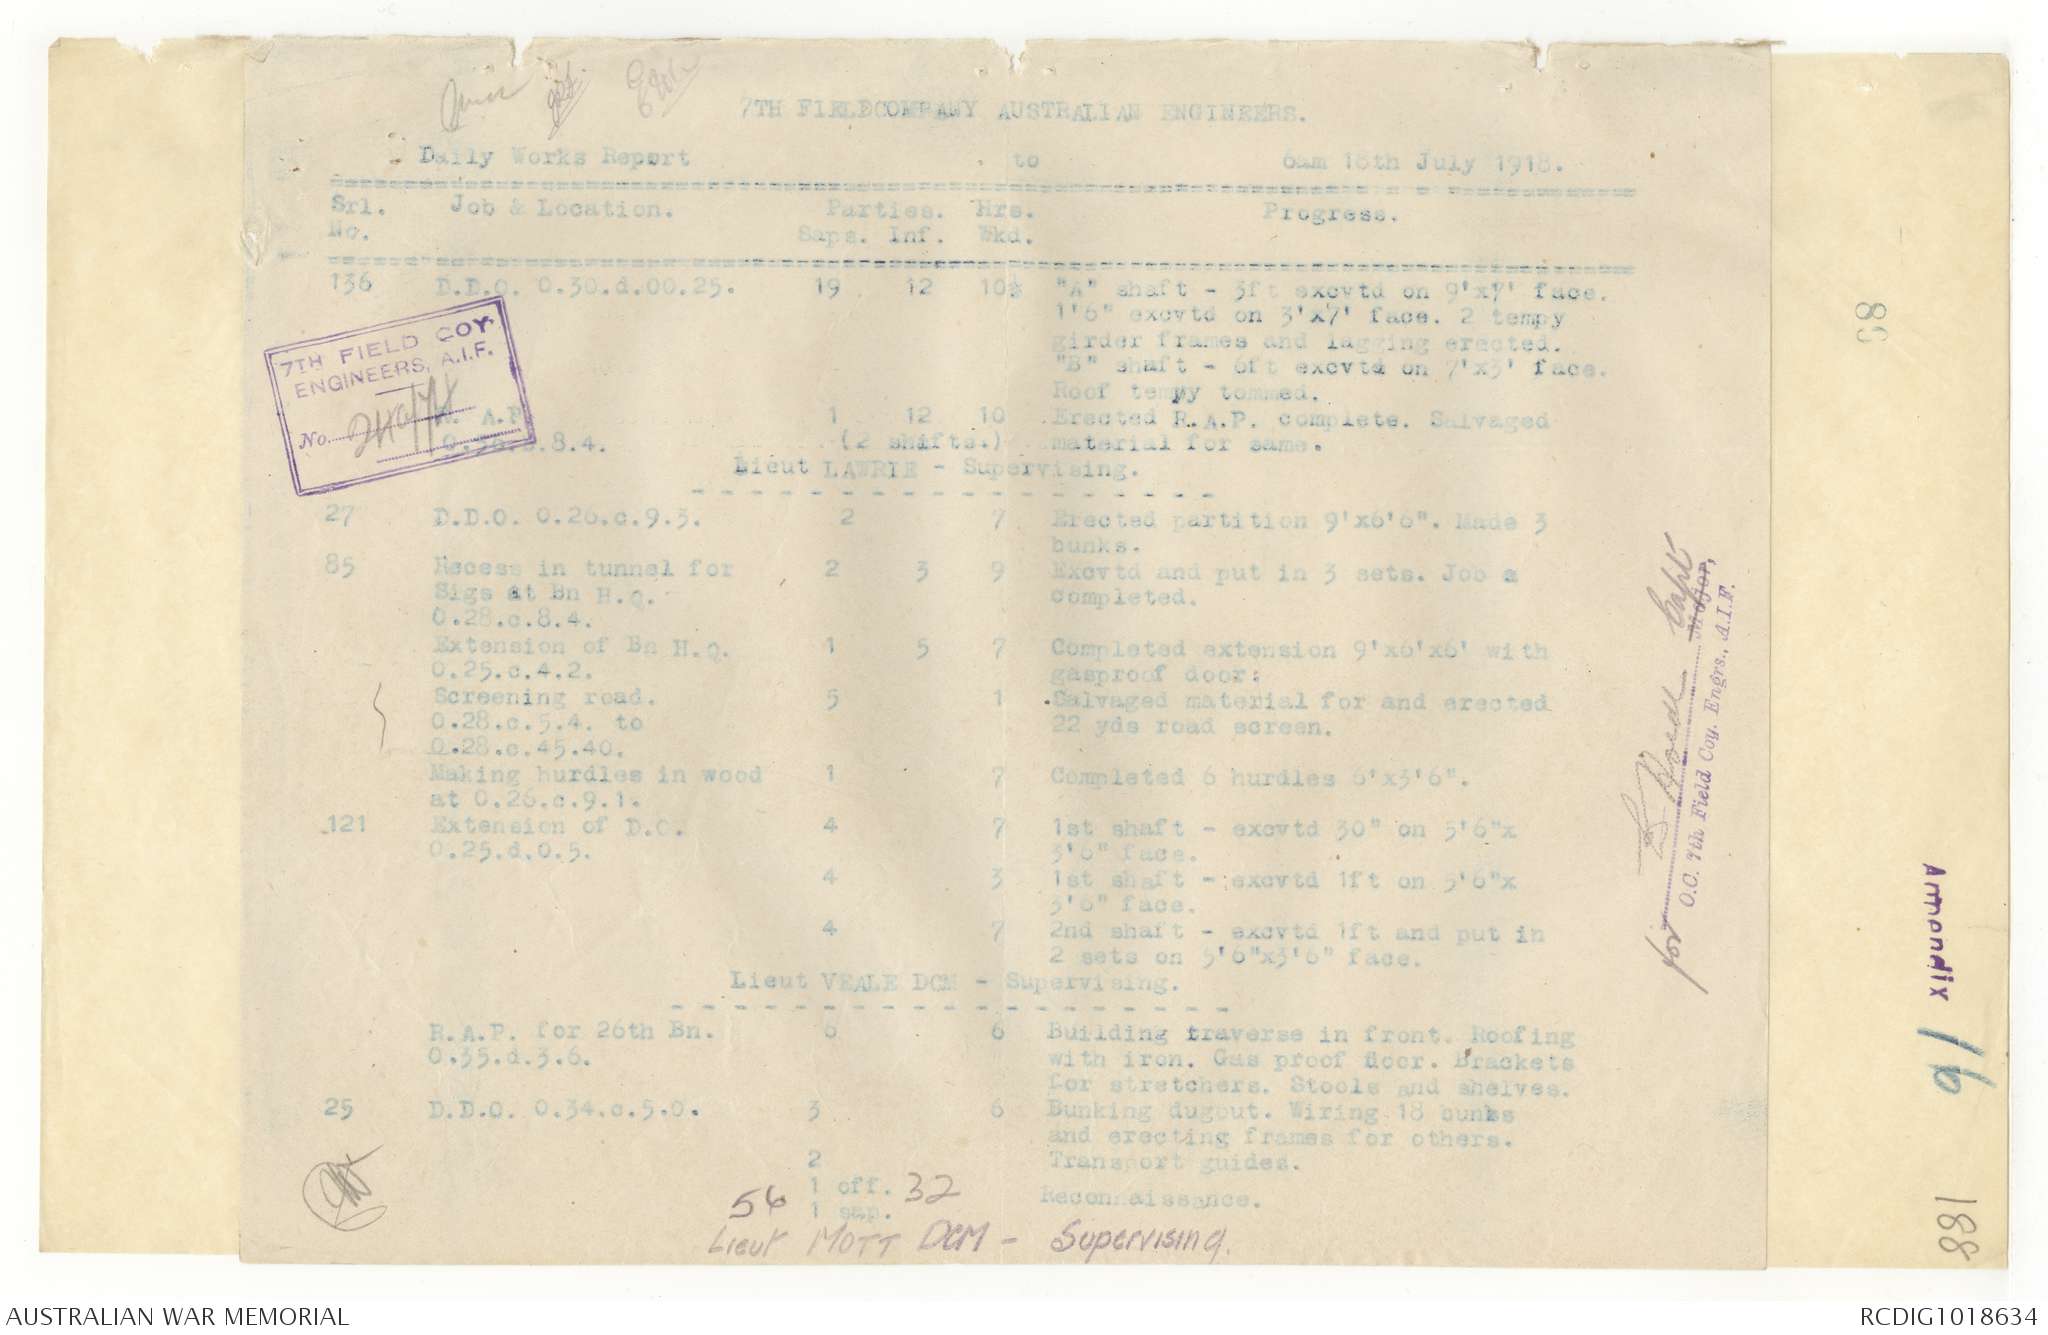 7TH FIELDCOMPANY AUSTRALIAN ENGINEERS.
Daily Works Report to 6am 18th July 1918.
Srl. Job & Location. Parties. Hrs. Progress.
No. Saps. Inf. Wkd.
136 D.D.O. O.30.d.00.25. 19 12 10½ "A" shaft - 3ft excvtd on 9'x7' face.
1'6" excvtd on 3'x7' face. 2 tempy
girder frames and lagging erected.
"B" shaft - 6ft excvtd on 7'x3' face.
Roof tempy tommed.
R. A.P. 1 12 10 Erected R.A.P. complete. Salvaged
8.4. (2 shifts.) material for same.
Lieut LAWRIE - Supervising.
27 D.D.O. O.26.c.9.3. 2 7 Erected partition 9'x6'6". Made 3
bunks.
85 Recess in tunnel for 2 3 9 Excvtd and put in 3 sets. Job
Sigs at Bn H.Q. completed.
O.28.c.8.4.
Extension of Bn H.Q. 1 5 7 Completed extension 9'x6'x6' with
O.25.c.4.2. gasproof door:
Screening road. 5 1 Salvaged material for and erected
O.28.c.5.4. to 22 yds road screen.
O.28.c.45.40.
Making hurdles in wood 1 7 Completed 6 hurdles 6'x3'6".
at O.26.c.9.1.
121 Extension of D.O. 4 7 1st shaft - excvtd 30" on 5'6"x
O.25.d.0.5. 3'6" face.
4 3 1st shaft - excvtd 1ft on 5'6"x
3'6" face.
4 7 2nd shaft - excvtd 1ft and put in
2 sets on 5'6"x3'6" face.
Lieut VEALE DCM - Supervising.
R.A.P. for 26th Bn. 6 6 Building traverse in front. Roofing
O.35.d.3.6. with iron. Gas proof door. Brackets
for stretchers. Stools and shelves.
25 D.D.O. O.34.c.5.0. 3 6 Bunking dugout. Wiring 18 bunks
and erecting frames for others.
2 Transport guides.
56 1 off. 32 Reconnaissance.
1 sap.
Lieut MOTT DCM - Supervising.
7TH FIELD COY.
ENGINEERS, A.I.F.
No.
for Capt
Major,
O.C. 7th Field Coy. Engrs., A.I.F.
83
Appendix 16
188
AUSTRALIAN WAR MEMORIAL
RCDIG1018634